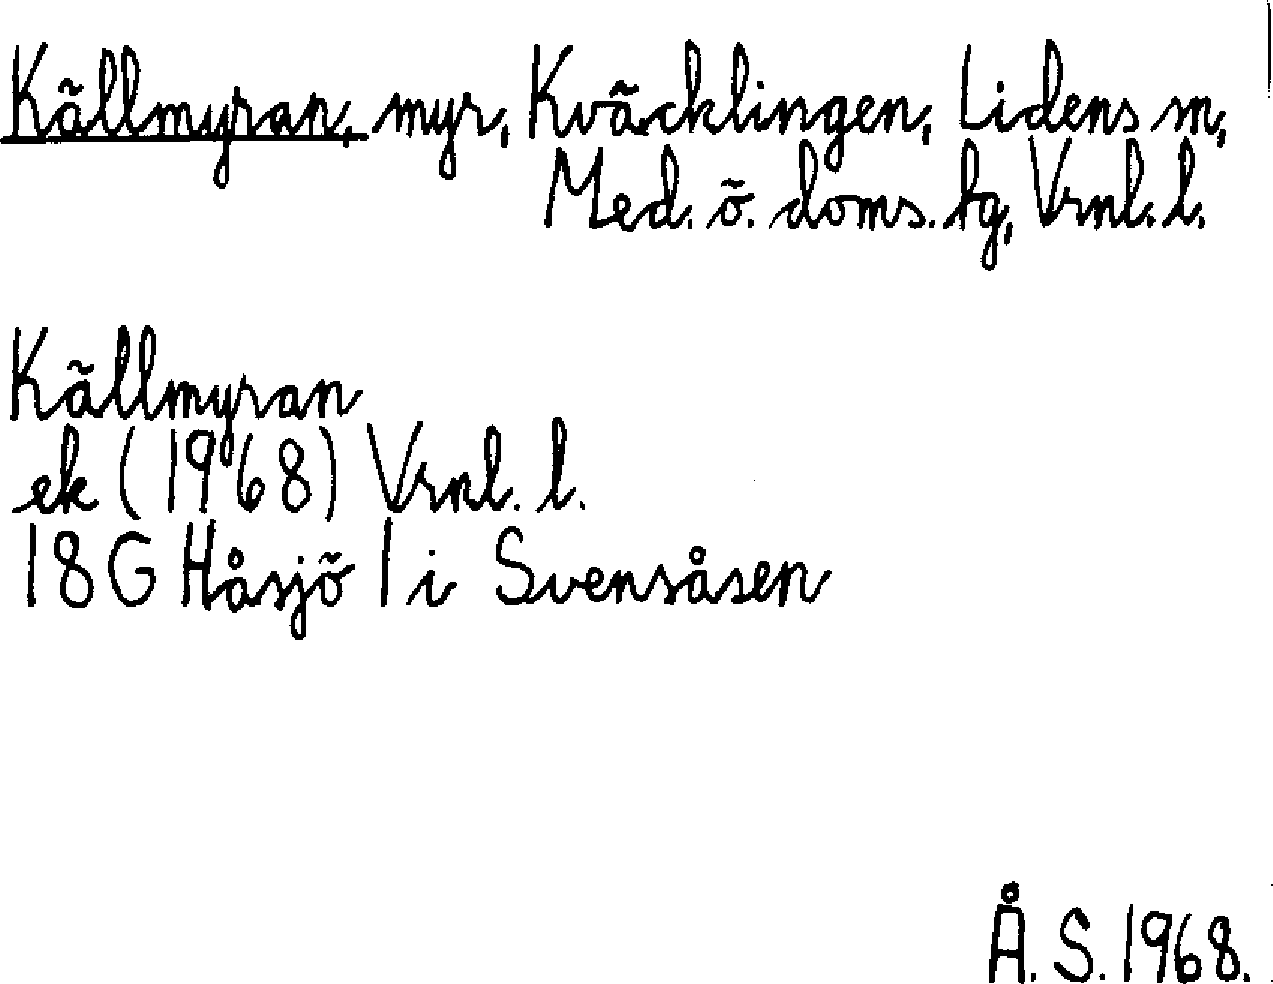 Källmyran, myr, Kväcklingen, Lidens sn,
Med. ö. doms. tg, Vrnl. l.
Källmyran
ek (1968) Vrnl. l.
18G Håsjö 1 i Svensåsen
Å. S. 1968.